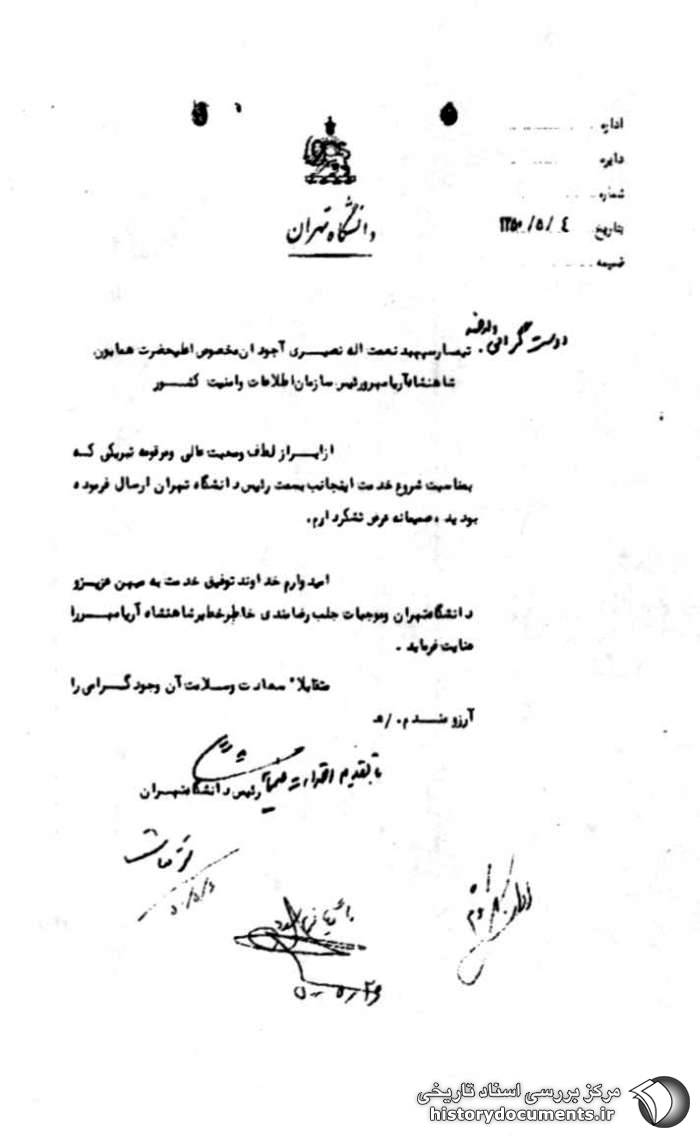 اداره
دایره
شماره
بتاریخ ۱۳۵۰/۵/۴
ضمیمه
دانشگاه تهران
دوست گرامی
تیمسار سپهبد نعمت اله نصیری آجودان مخصوص اعلیحضرت همایون
شاهنشاه آریامهر و رئیس سازمان اطلاعات و امنیت کشور
از ابراز لطف و محبت عالی و مرقومه تبریکی که
بمناسبت شروع خدمت اینجانب بسمت رئیس دانشگاه تهران ارسال فرموده
بودید ، صمیمانه عرض تشکر دارم.
امیدوارم خداوند توفیق خدمت به میهن عزیز و
دانشگاه تهران و موجبات جلب رضامندی خاطر خطیر شاهنشاه آریامهر را
عنایت فرماید .
متقابلاً سعادت و سلامت آن وجود گرامی را
آرزومندم. /هـ
با تقدیم احترامات
رئیس دانشگاه تهران
۵۰/۵/۶
بایگانی شود
مرکز بررسی اسناد تاریخی
historydocuments.ir